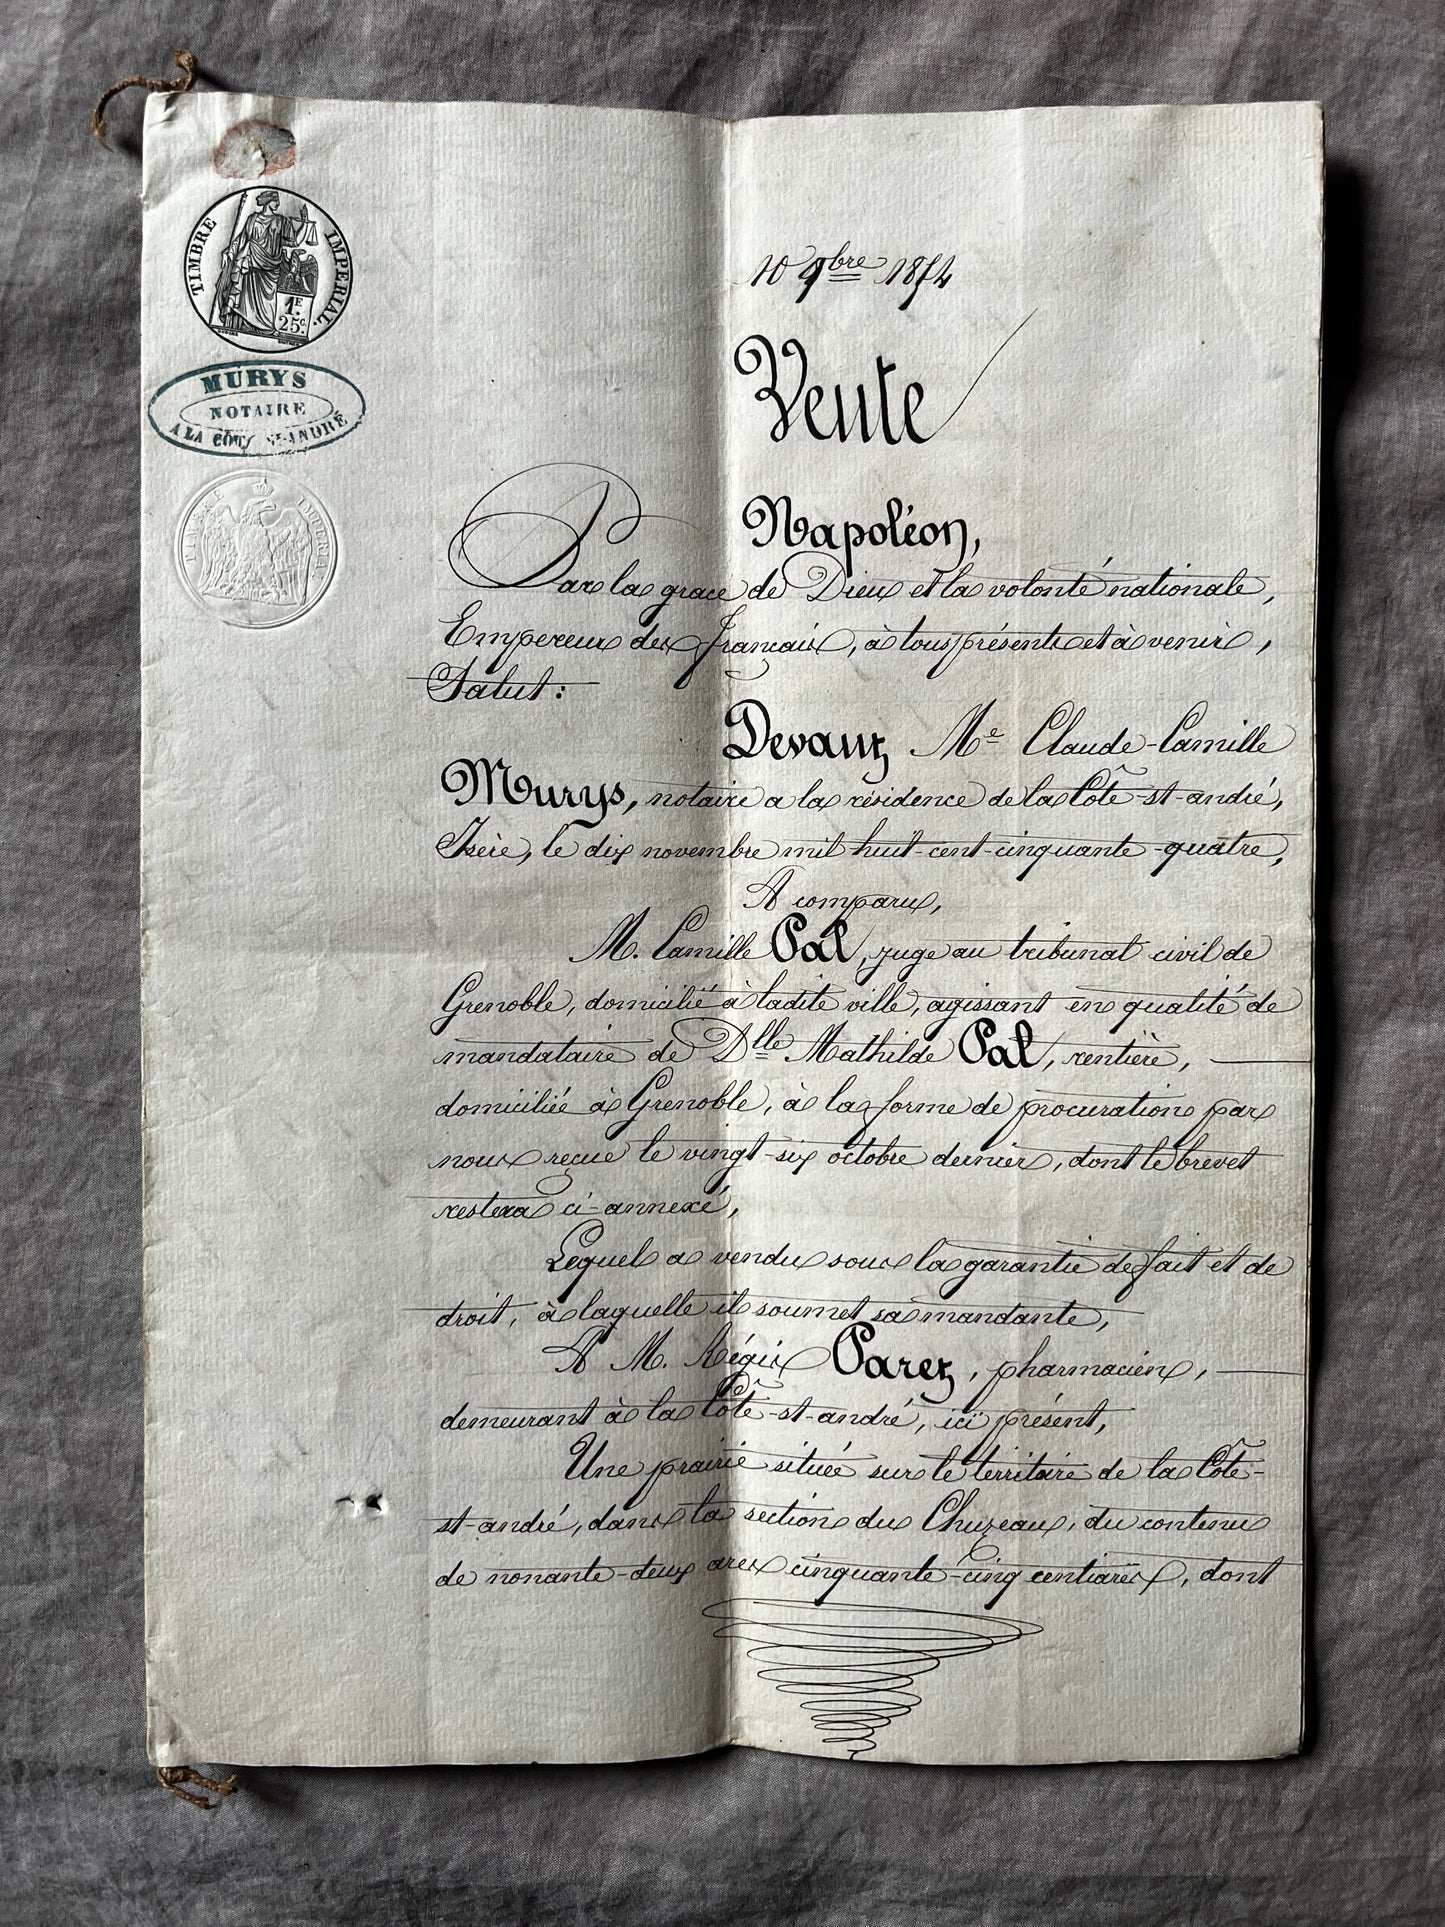 TIMBRE IMPERIAL.
1F. 25c.
MURYS
NOTAIRE
A LA CÔTE ST-ANDRÉ
TIMBRE IMPERIAL
10 9bre 1854
Vente
Napoléon,
Par la grace de Dieu et la volonté nationale,
Empereur des français, à tous présents et à venir,
Salut:
Devant Me Claude-Camille
Murys, notaire a la résidence de la Côte-st-andré,
Isère, le dix novembre mil huit-cent-cinquante-quatre,
A comparu,
M. Camille Pal, juge au tribunal civil de
Grenoble, domicilié à ladite ville, agissant en qualité de
mandataire de Dlle Mathilde Pal, rentière,
domiciliée à Grenoble, à la forme de procuration par
nous reçue le vingt-six octobre dernier, dont le brevet
restera ci-annexé,
Lequel a vendu sous la garantie de fait et de
droit, à laquelle il soumet sa mandante,
A M. Régis Paret, pharmacien,
demeurant à la Côte-st-andré, ici présent,
Une prairie située sur le territoire de la Côte-
st-andré, dans la section du Chuzeau, du contenu
de nonante-deux ares cinquante-cinq centiares, dont